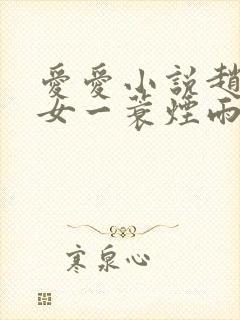 愛愛小説趙
女一蓑煙雨
寒泉心